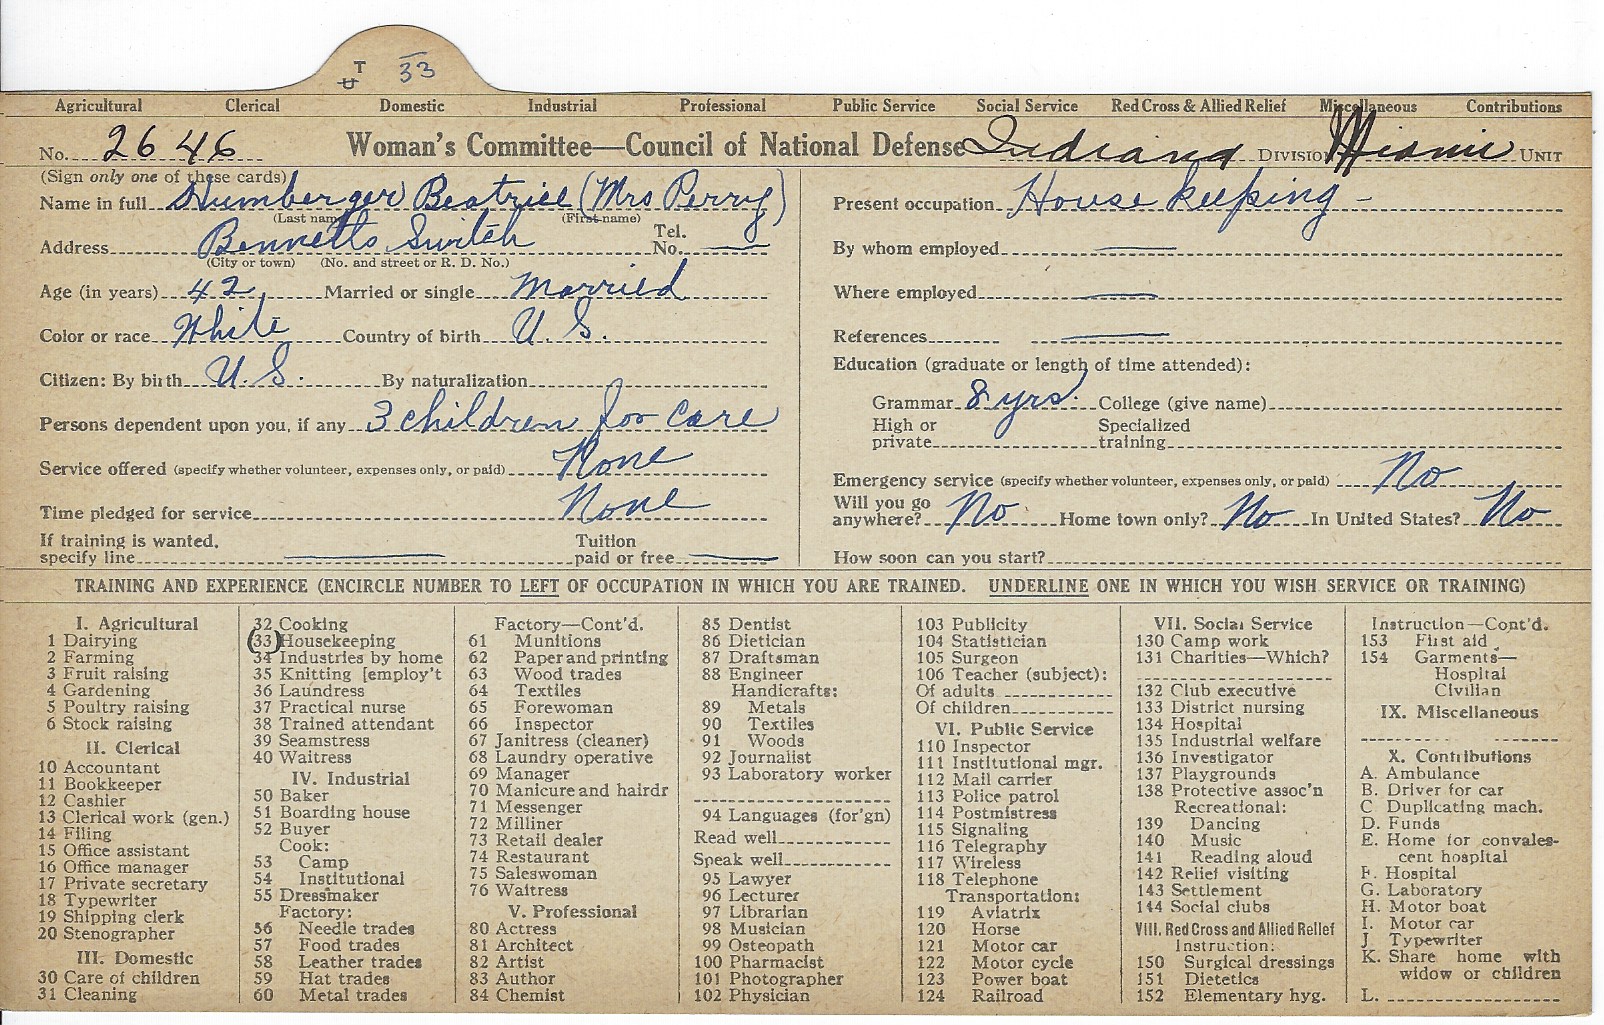 UT 33
Agricultural Clerical Domestic Industrial Professional Public Service Social Service Red Cross & Allied Relief Miscellaneous Contributions
No. 2646 Woman's Committee—Council of National Defense Indiana DIVISION Miami UNIT
(Sign only one of these cards)
Name in full Humberger Beatrice (Mrs Perry)
(Last name) (First name)
Address Bennetts Switch Tel. No.
(City or town) (No. and street or R. D. No.)
Age (in years) 42 Married or single Married
Color or race White Country of birth U. S.
Citizen: By birth U. S. By naturalization
Persons dependent upon you, if any 3 children for care
Service offered (specify whether volunteer, expenses only, or paid) None
Time pledged for service None
If training is wanted, specify line Tuition paid or free
Present occupation House keeping -
By whom employed
Where employed
References
Education (graduate or length of time attended):
Grammar 8 yrs. College (give name)
High or private Specialized training
Emergency service (specify whether volunteer, expenses only, or paid) No
Will you go anywhere? No Home town only? No In United States? No
How soon can you start?
TRAINING AND EXPERIENCE (ENCIRCLE NUMBER TO LEFT OF OCCUPATION IN WHICH YOU ARE TRAINED. UNDERLINE ONE IN WHICH YOU WISH SERVICE OR TRAINING)
I. Agricultural
1 Dairying
2 Farming
3 Fruit raising
4 Gardening
5 Poultry raising
6 Stock raising
II. Clerical
10 Accountant
11 Bookkeeper
12 Cashier
13 Clerical work (gen.)
14 Filing
15 Office assistant
16 Office manager
17 Private secretary
18 Typewriter
19 Shipping clerk
20 Stenographer
III. Domestic
30 Care of children
31 Cleaning
32 Cooking
(33) Housekeeping
34 Industries by home
35 Knitting [employ't
36 Laundress
37 Practical nurse
38 Trained attendant
39 Seamstress
40 Waitress
IV. Industrial
50 Baker
51 Boarding house
52 Buyer
Cook:
53 Camp
54 Institutional
55 Dressmaker
Factory:
56 Needle trades
57 Food trades
58 Leather trades
59 Hat trades
60 Metal trades
Factory—Cont'd.
61 Munitions
62 Paper and printing
63 Wood trades
64 Textiles
65 Forewoman
66 Inspector
67 Janitress (cleaner)
68 Laundry operative
69 Manager
70 Manicure and hairdr
71 Messenger
72 Milliner
73 Retail dealer
74 Restaurant
75 Saleswoman
76 Waitress
V. Professional
80 Actress
81 Architect
82 Artist
83 Author
84 Chemist
85 Dentist
86 Dietician
87 Draftsman
88 Engineer
Handicrafts:
89 Metals
90 Textiles
91 Woods
92 Journalist
93 Laboratory worker
94 Languages (for'gn)
Read well
Speak well
95 Lawyer
96 Lecturer
97 Librarian
98 Musician
99 Osteopath
100 Pharmacist
101 Photographer
102 Physician
103 Publicity
104 Statistician
105 Surgeon
106 Teacher (subject):
Of adults
Of children
VI. Public Service
110 Inspector
111 Institutional mgr.
112 Mail carrier
113 Police patrol
114 Postmistress
115 Signaling
116 Telegraphy
117 Wireless
118 Telephone
Transportation:
119 Aviatrix
120 Horse
121 Motor car
122 Motor cycle
123 Power boat
124 Railroad
VII. Social Service
130 Camp work
131 Charities—Which?
132 Club executive
133 District nursing
134 Hospital
135 Industrial welfare
136 Investigator
137 Playgrounds
138 Protective assoc'n
Recreational:
139 Dancing
140 Music
141 Reading aloud
142 Relief visiting
143 Settlement
144 Social clubs
VIII. Red Cross and Allied Relief
Instruction:
150 Surgical dressings
151 Dietetics
152 Elementary hyg.
Instruction—Cont'd.
153 First aid
154 Garments—
Hospital
Civilian
IX. Miscellaneous
X. Contributions
A. Ambulance
B. Driver for car
C. Duplicating mach.
D. Funds
E. Home for convales-
cent hospital
F. Hospital
G. Laboratory
H. Motor boat
I. Motor car
J. Typewriter
K. Share home with
widow or children
L.